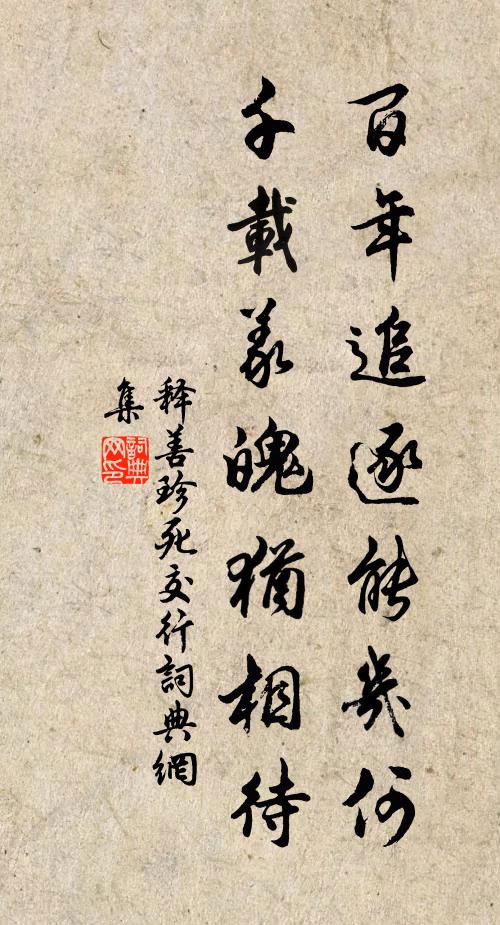 百年追逐能幾何
千載義魄猶相待
释善珍死交行詞典網
集
詞典
网印